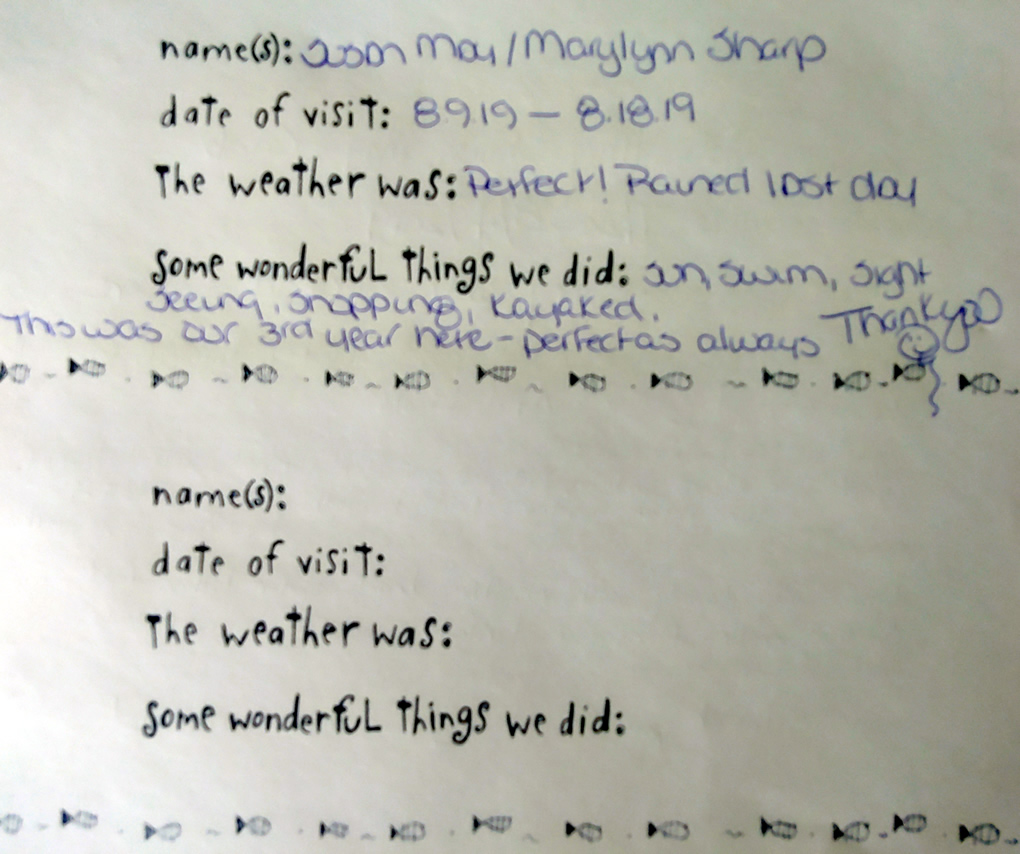 name(s): Jason May / Marylynn Sharp
date of visit: 8.9.19 – 8.18.19
The weather was: Perfect! Rained last day
Some wonderful things we did: sun, swim, sight
seeing, shopping, kayaked.
This was our 3rd year here - perfect as always Thank you
name(s):
date of visit:
The weather was:
Some wonderful things we did: